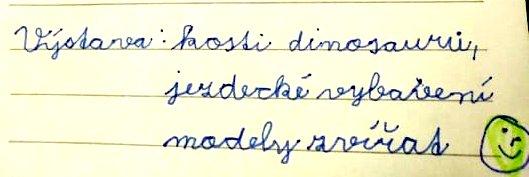 Výstava: kosti dinosaurů,
jezdecké vybavení
modely zvířat